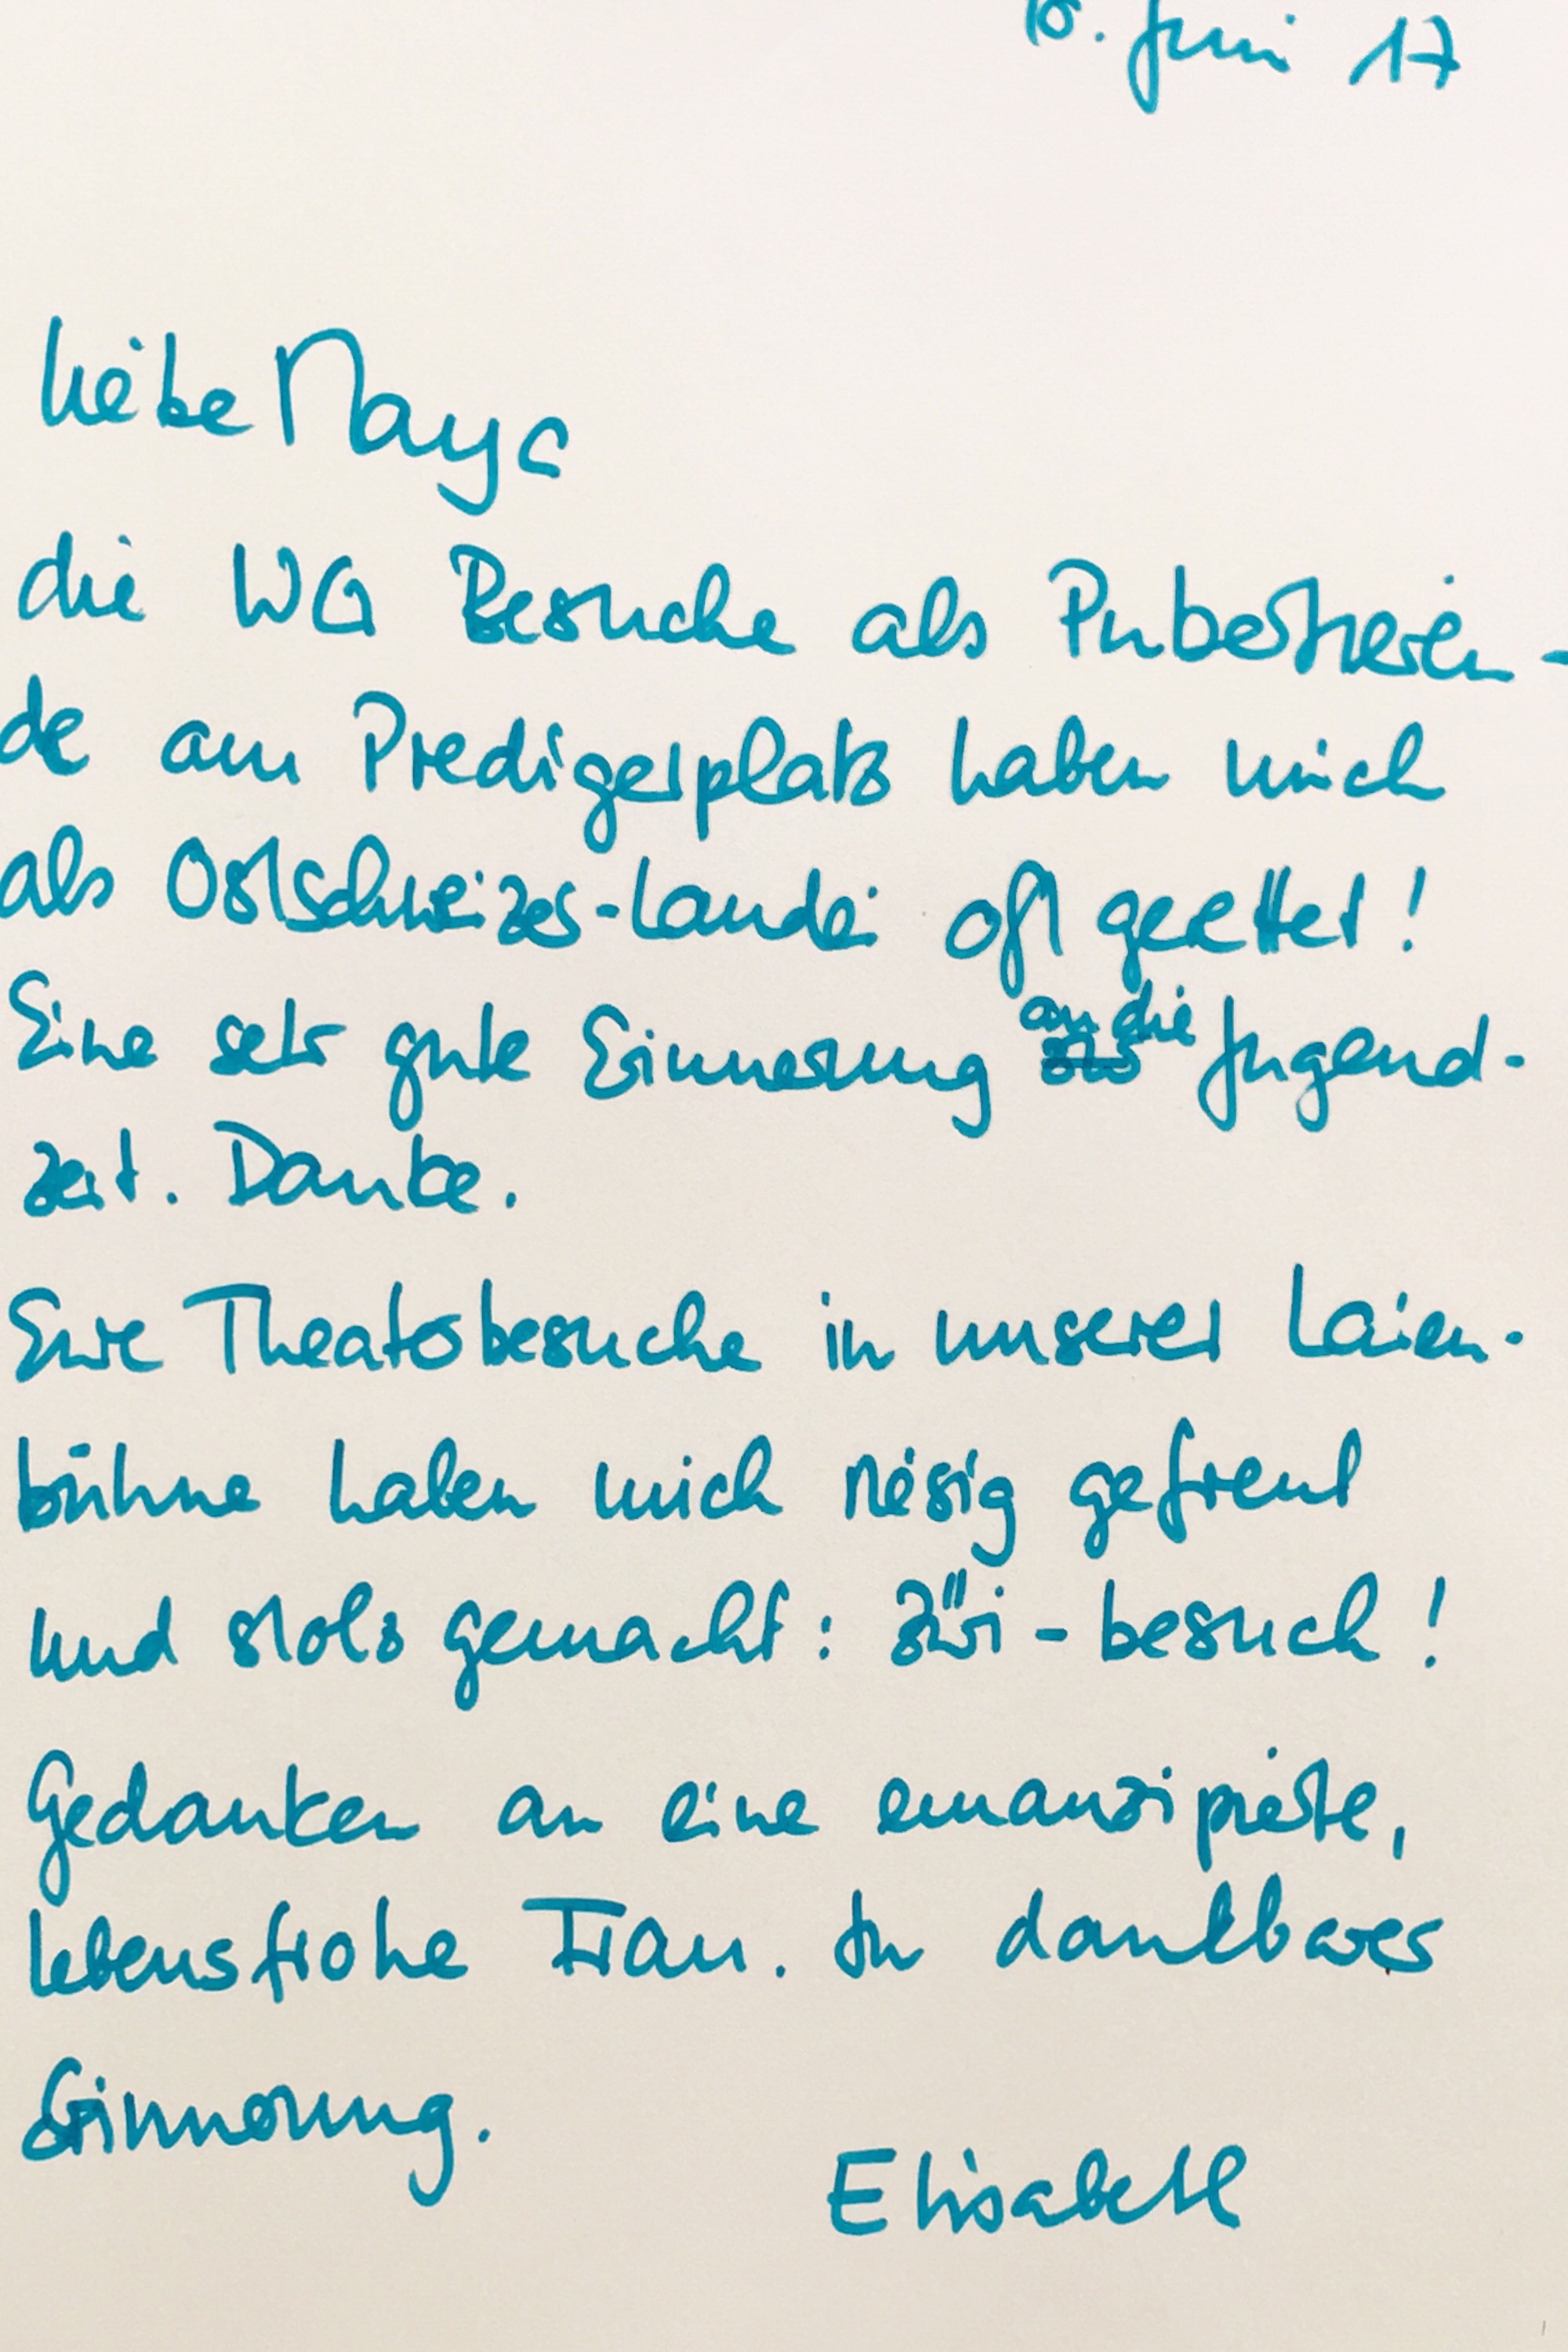 16. Juni 17
Liebe Maya
die WG Besuche als Pubertieren-
de am Predigerplatz haben mich
als Ostschweizer-Landei oft gerettet!
Eine sehr gute Erinnerung an die Jugend-
zeit. Danke.
Eure Theaterbesuche in unserer Laien-
bühne haben mich riesig gefreut
und stolz gemacht: Züri-besuch!
Gedanken an eine emanzipierte,
lebensfrohe Frau. In dankbarer
Erinnerung.
Elisabeth